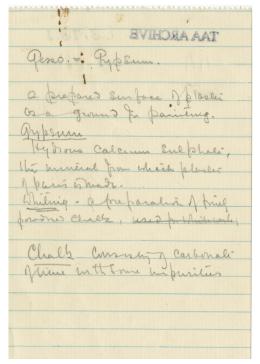 TAA ARCHIVE
Gesso. - Gypsum.
a prepared surface of plaster
as a ground for painting.
Gypsum
Hydrous calcium sulphate,
the mineral from which plaster
of paris is made.
Whiting - a preparation of finely
powdered chalk, used for whitewash,
Chalk consisting of carbonate
of lime with some impurities